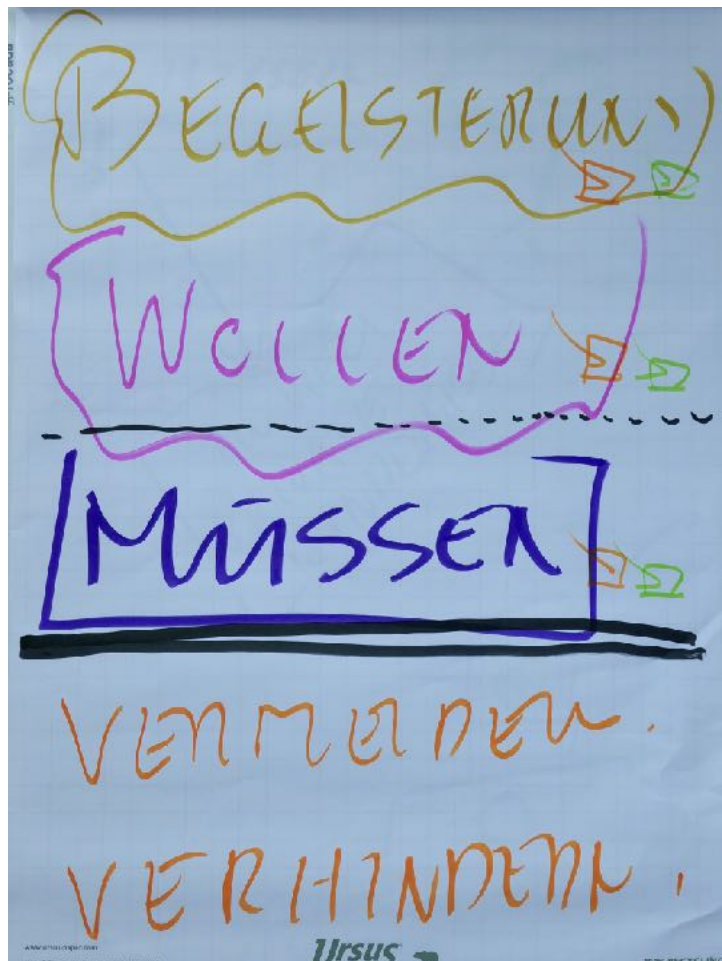 BEGEISTERUNG
WOLLEN
MÜSSEN
VERMEIDEN.
VERHINDERN.
Ursus